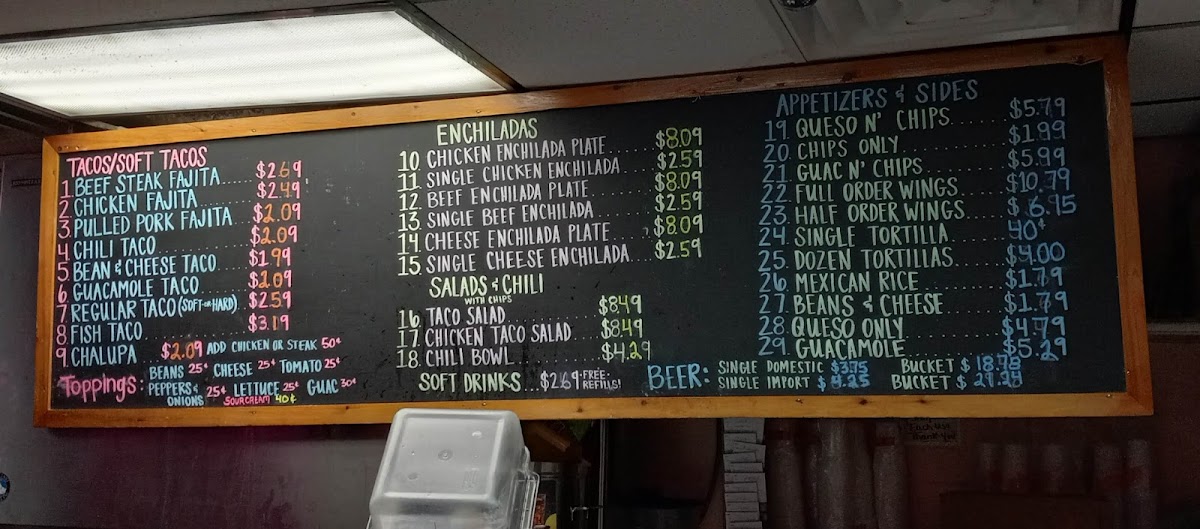 TACOS/SOFT TACOS
1 BEEF STEAK FAJITA $2.69
2 CHICKEN FAJITA $2.49
3 PULLED PORK FAJITA $2.09
4 CHILI TACO $2.09
5 BEAN & CHEESE TACO $1.99
6 GUACAMOLE TACO $2.09
7 REGULAR TACO (SOFT OR HARD) $2.59
8 FISH TACO $3.19
9 CHALUPA $2.09 ADD CHICKEN OR STEAK 50¢
Toppings: BEANS 25¢ CHEESE 25¢ TOMATO 25¢
PEPPERS & ONIONS 25¢ LETTUCE 25¢ GUAC 30¢
SOUR CREAM 40¢
ENCHILADAS
10 CHICKEN ENCHILADA PLATE $8.09
11 SINGLE CHICKEN ENCHILADA $2.59
12 BEEF ENCHILADA PLATE $8.09
13 SINGLE BEEF ENCHILADA $2.59
14 CHEESE ENCHILADA PLATE $8.09
15 SINGLE CHEESE ENCHILADA $2.59
SALADS & CHILI
WITH CHIPS
16 TACO SALAD $8.49
17 CHICKEN TACO SALAD $8.49
18 CHILI BOWL $4.29
SOFT DRINKS $2.69 FREE REFILLS!
APPETIZERS & SIDES
19. QUESO N' CHIPS $5.79
20. CHIPS ONLY $1.99
21. GUAC N' CHIPS $5.99
22. FULL ORDER WINGS $10.79
23. HALF ORDER WINGS $6.95
24. SINGLE TORTILLA 40¢
25. DOZEN TORTILLAS $4.00
26. MEXICAN RICE $1.79
27. BEANS & CHEESE $1.79
28. QUESO ONLY $4.79
29. GUACAMOLE $5.29
BEER: SINGLE DOMESTIC $3.75 BUCKET $18.78
SINGLE IMPORT $4.25 BUCKET $